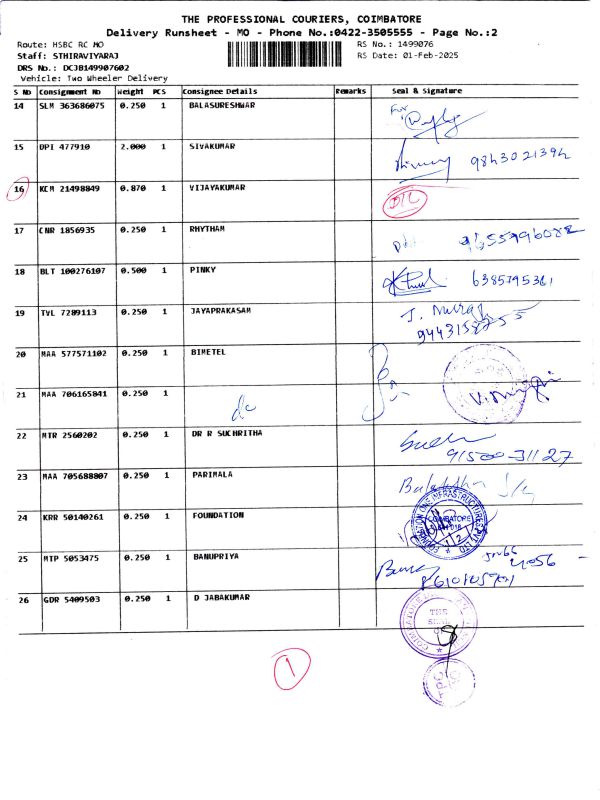 THE PROFESSIONAL COURIERS, COIMBATORE
Delivery Runsheet - MO - Phone No.:0422-3505555 - Page No.:2
Route: HSBC RC MO
RS No.: 1499076
Staff: STHIRAVIYARAJ
RS Date: 01-Feb-2025
DRS No.: DCJB149907602
Vehicle: Two Wheeler Delivery
S No Consignment No Weight PCS Consignee Details Remarks Seal & Signature
14 SLM 363686075 0.250 1 BALASURESHWAR For
15 DPI 477910 2.000 1 SIVAKUMAR 9843021394
16 KCM 21498849 0.870 1 VIJAYAKUMAR D/L
17 CNR 1856935 0.250 1 RHYTHAM 9655996082
18 BLT 100276107 0.500 1 PINKY 6385795361
19 TVL 7289113 0.250 1 JAYAPRAKASAM
9443158755
20 MAA 577571102 0.250 1 BIMETEL
21 MAA 706165841 0.250 1 dc
22 MTR 2560202 0.250 1 DR R SUCHRITHA
91500-31127
23 MAA 705688807 0.250 1 PARIMALA
24 KRR 50140261 0.250 1 FOUNDATION COIMBATORE
25 MTP 5053475 0.250 1 BANUPRIYA
26 GDR 5409503 0.250 1 D JABAKUMAR THE
1